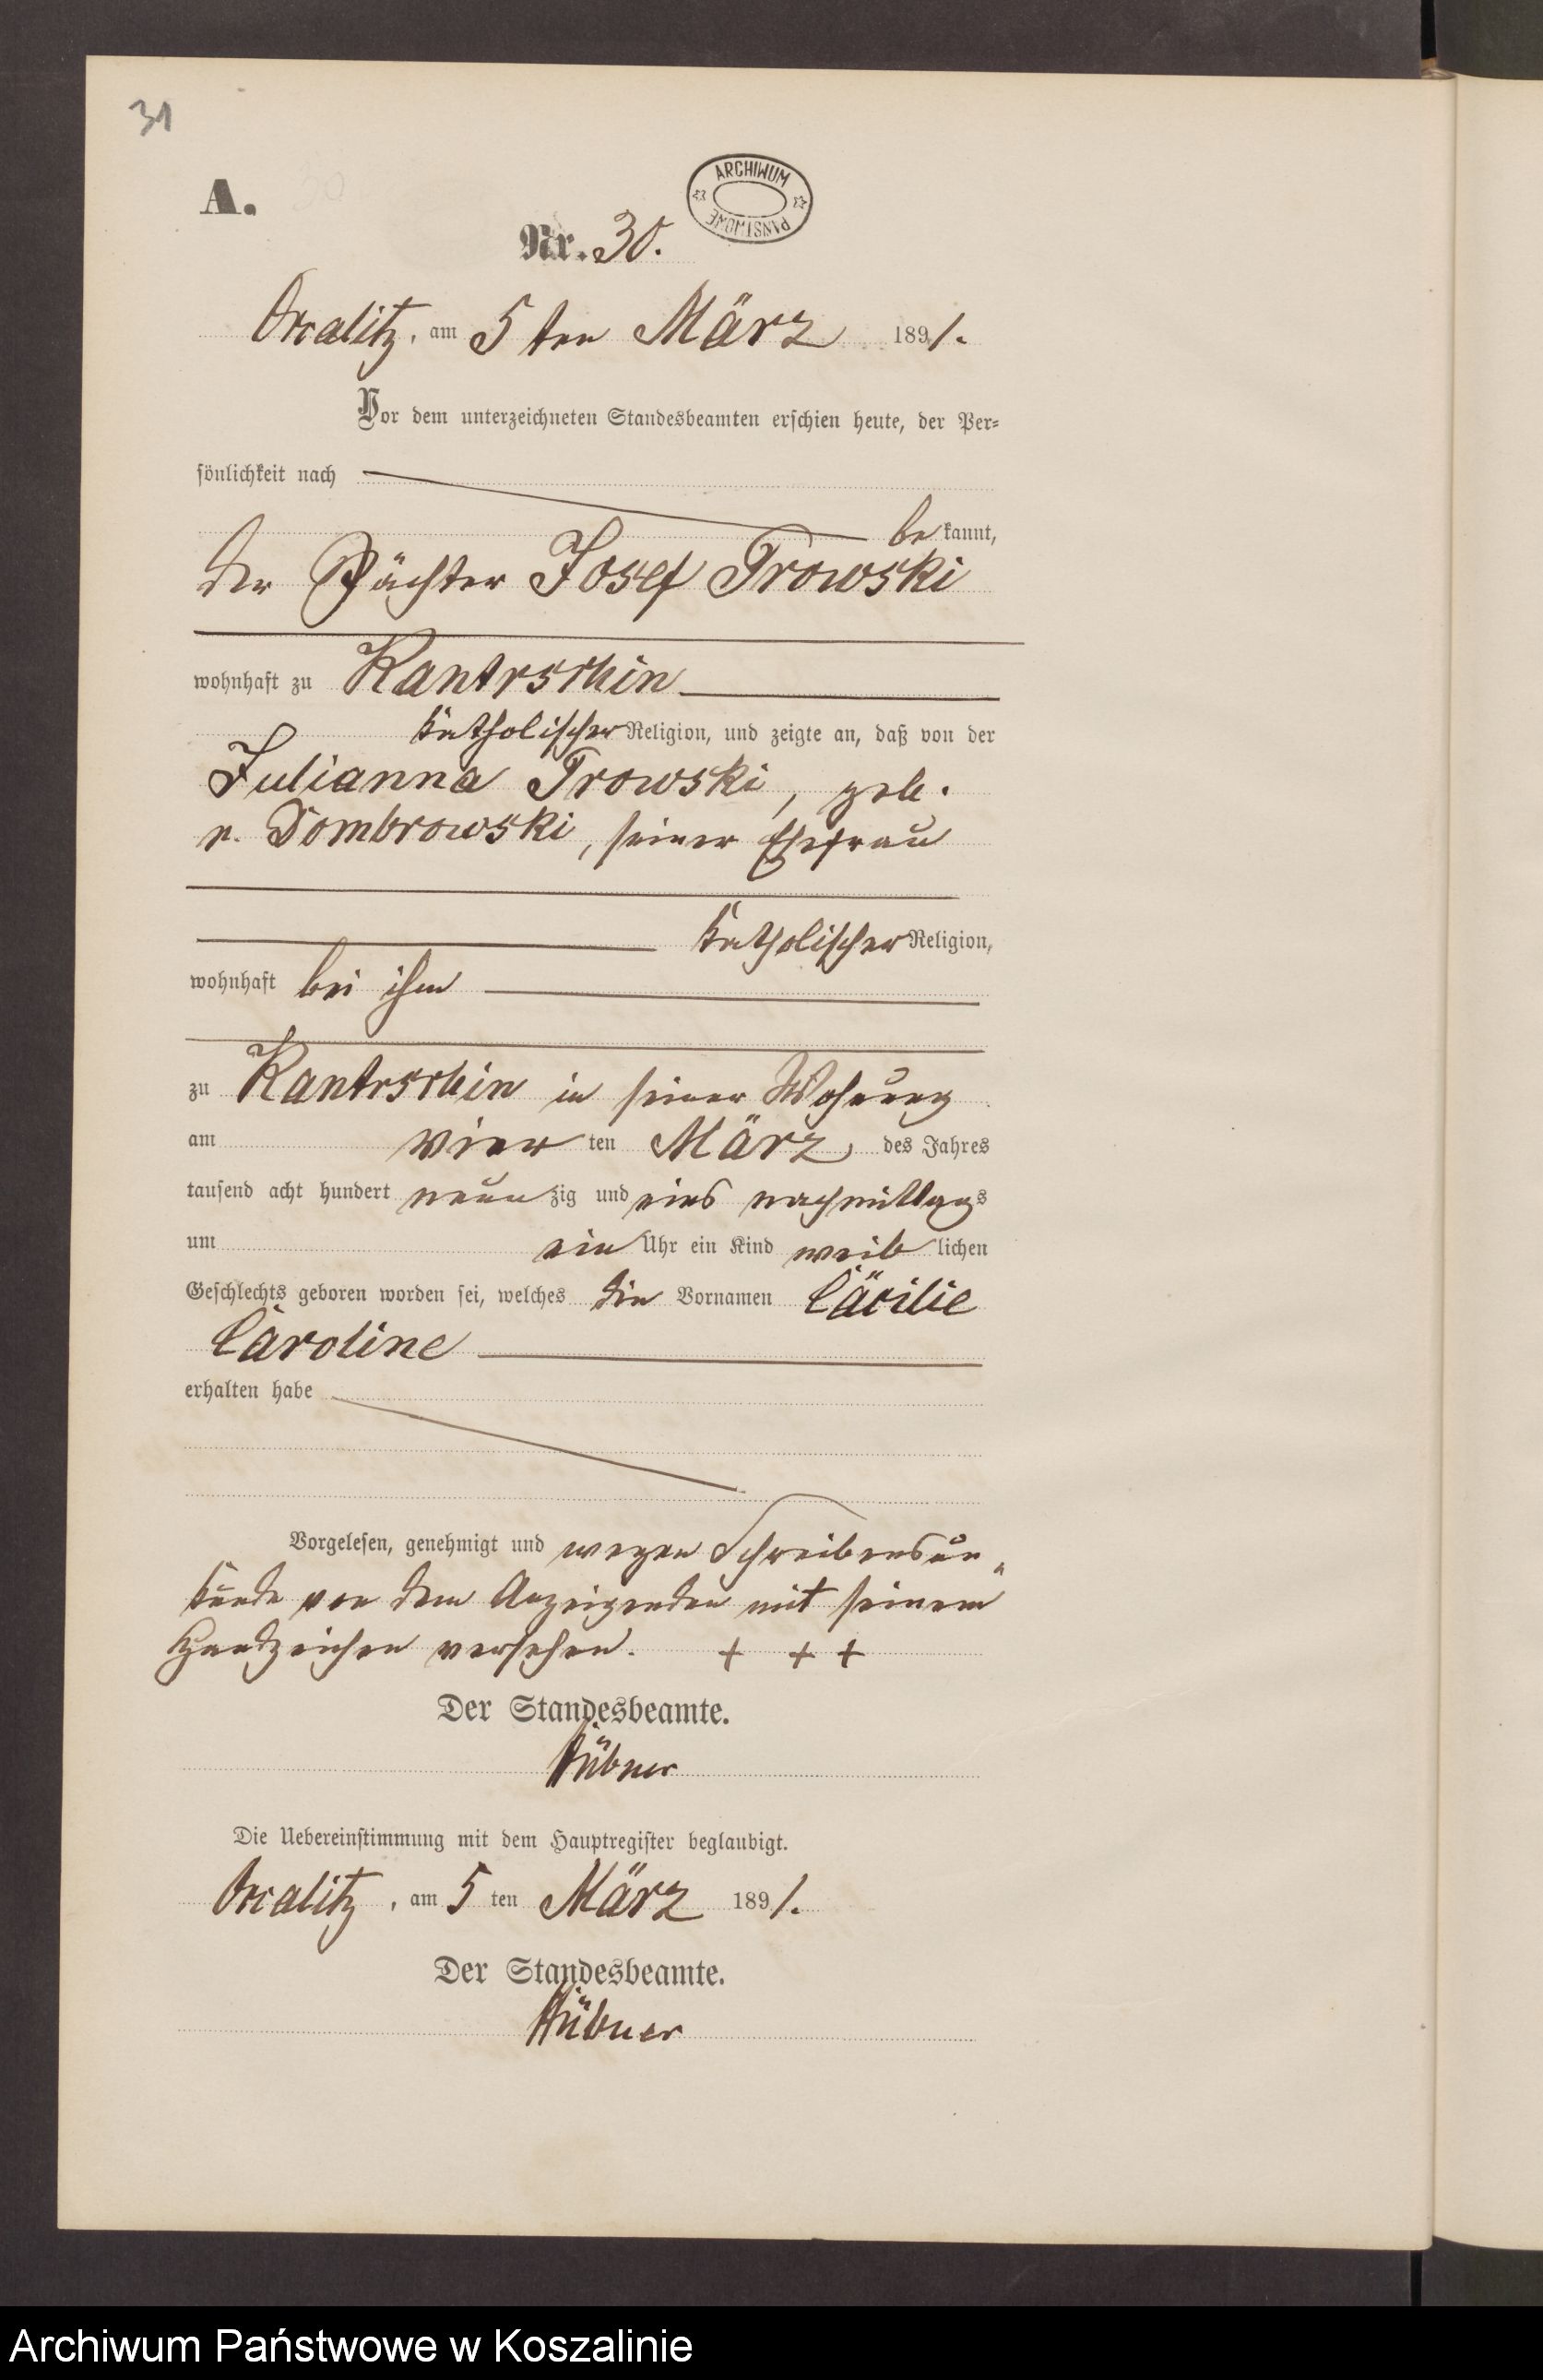 31
A.
30
ARCHIWUM PAŃSTWOWE
Nr. 30.
Oscalitz, am 5 ten März 1891.
Vor dem unterzeichneten Standesbeamten erschien heute, der Per-
sönlichkeit nach
bekannt,
der Pächter Josef Trowski
wohnhaft zu Kantrschin
katholischer Religion, und zeigte an, daß von der
Julianna Trowski, geb.
v. Dombrowski, seiner Ehefrau
katholischer Religion,
wohnhaft bei ihm
zu Kantrschin in seiner Wohnung
am vier ten März des Jahres
tausend acht hundert neun zig und eins nachmittags
um ein Uhr ein Kind weib lichen
Geschlechts geboren worden sei, welches die Vornamen Cäcilie
Caroline
erhalten habe
Vorgelesen, genehmigt und wegen Schreibensun-
kunde von dem Anzeigenden mit seinem
Handzeichen versehen. + + +
Der Standesbeamte.
Hübner
Die Uebereinstimmung mit dem Hauptregister beglaubigt.
Oscalitz, am 5 ten März 1891.
Der Standesbeamte.
Hübner
Archiwum Państwowe w Koszalinie